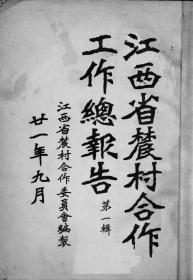 江西省農村合作
工作總報告
第一輯
江西省農村合作委員會編製
廿一年九月